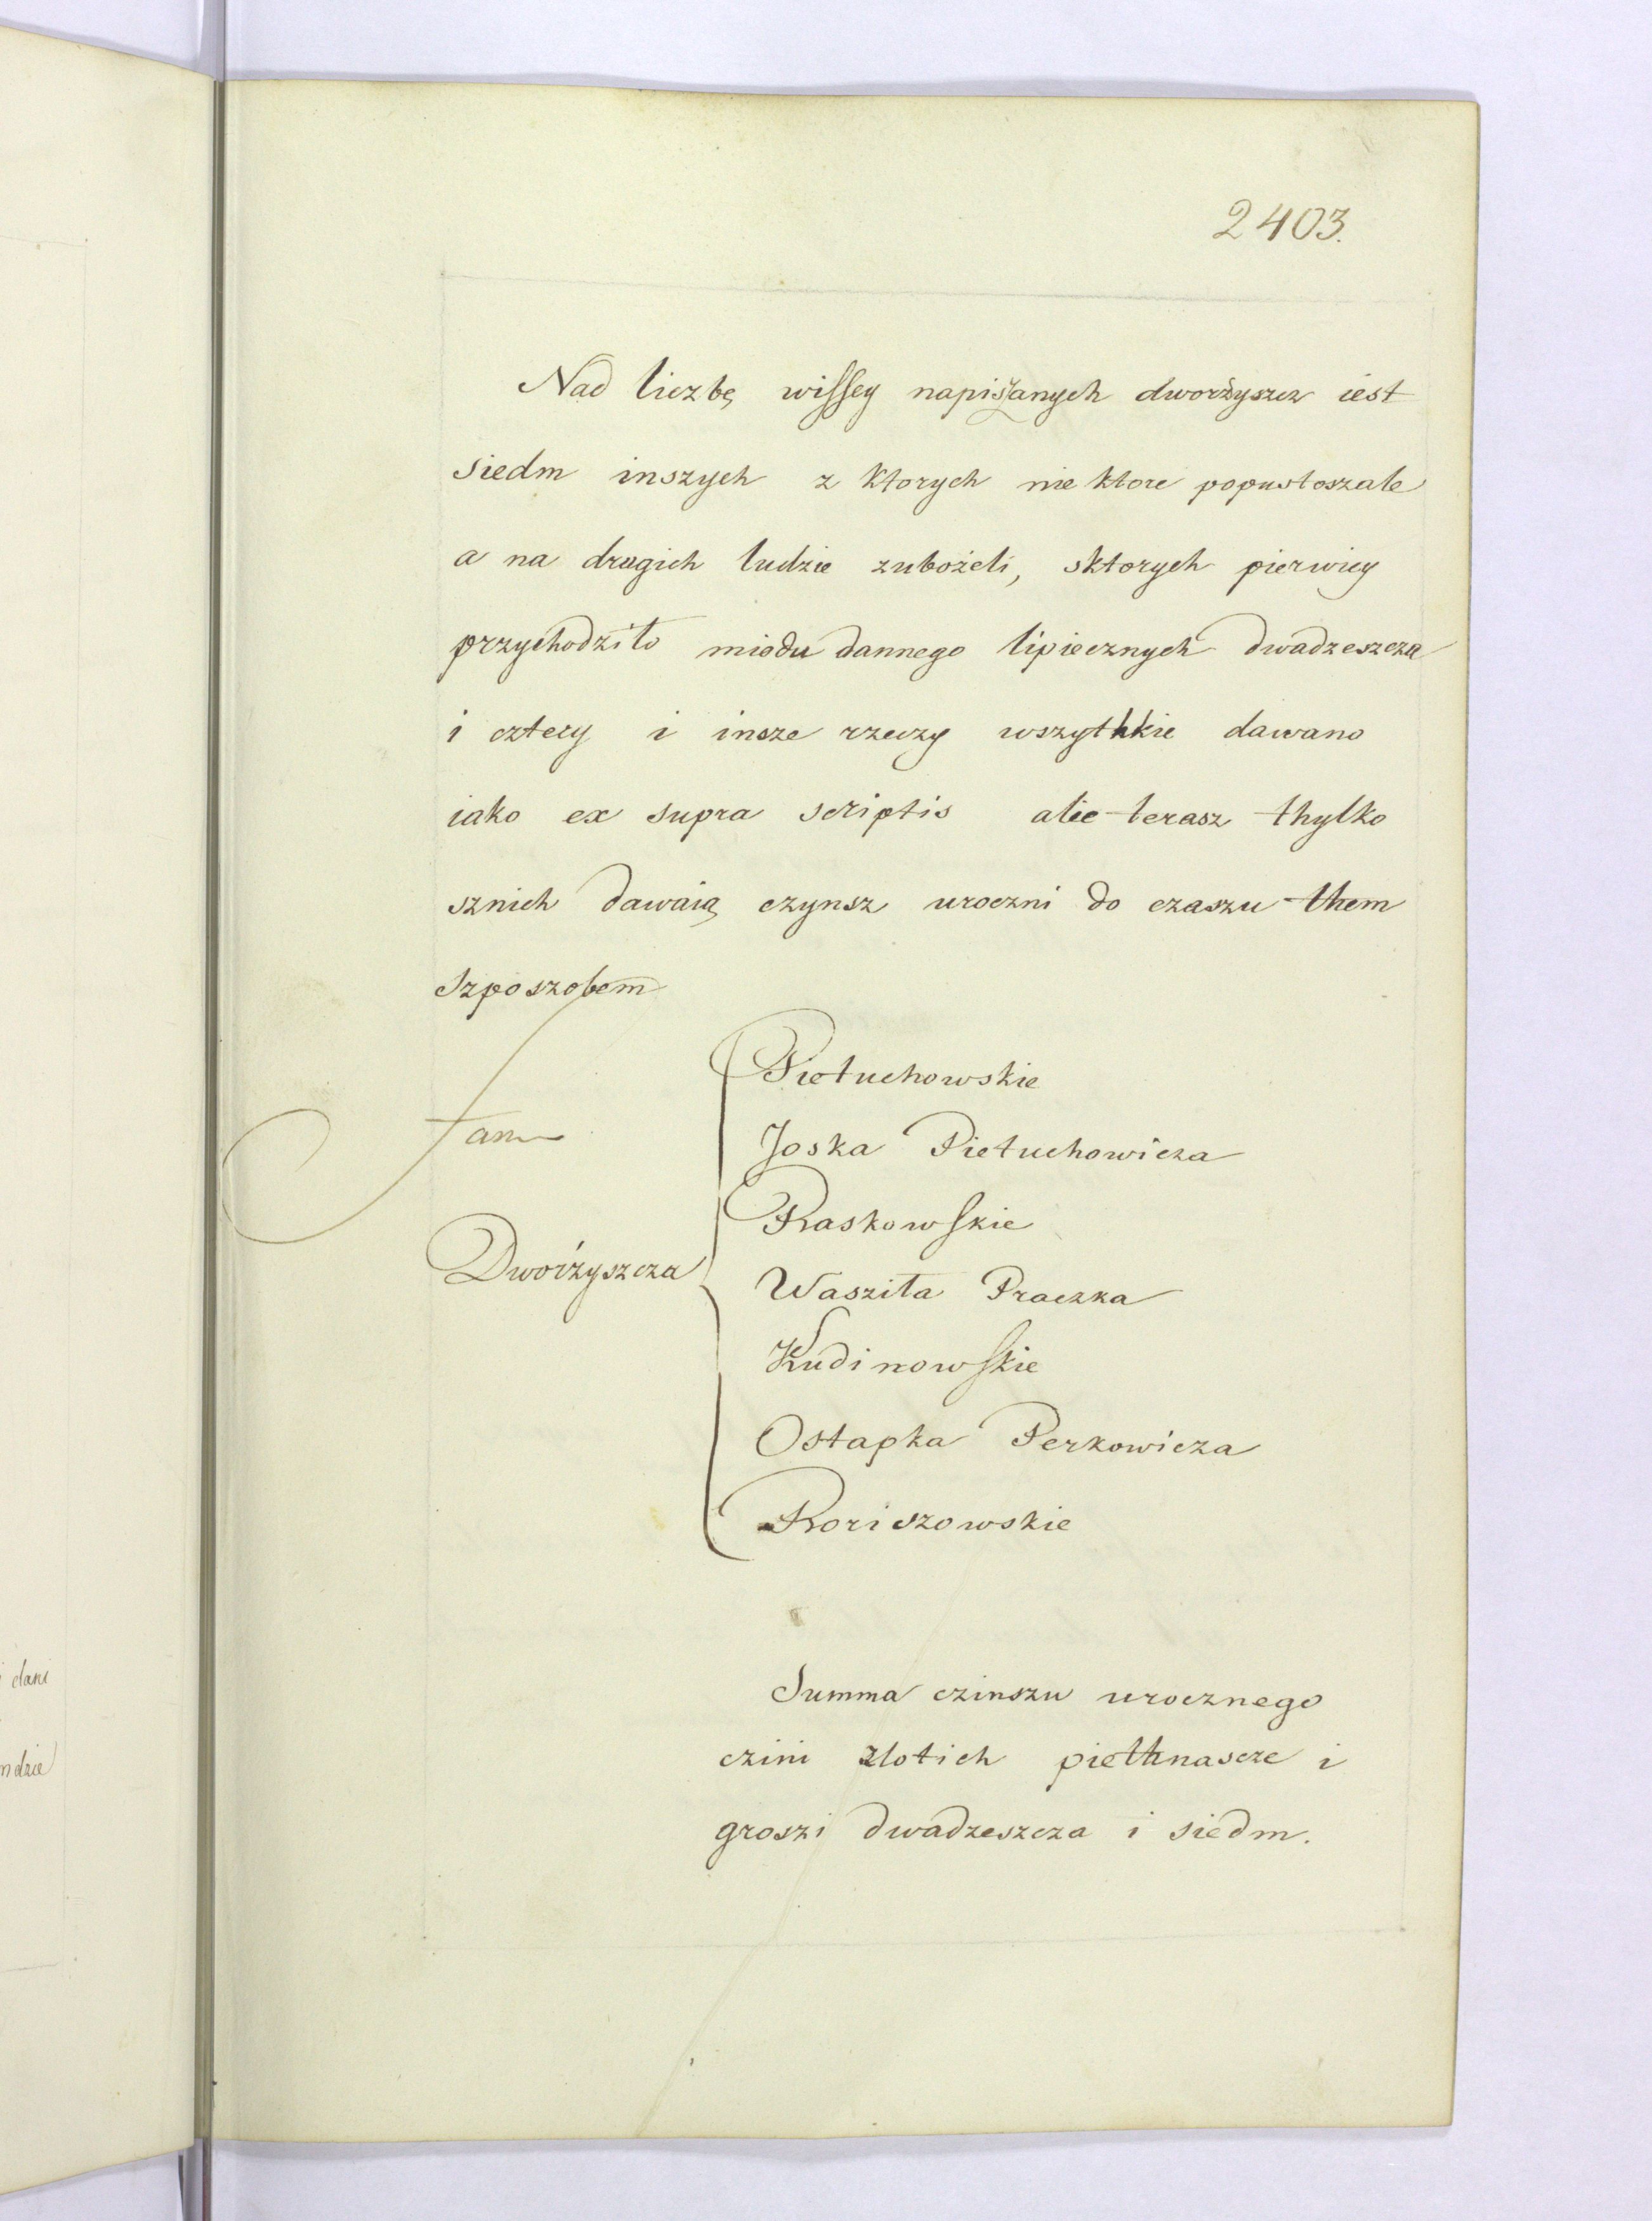 2403.
Nad liczbę wissey napiszanych dworżyszcz iest
siedm inszych z ktorych nie ktore popustoszale
a na drugich ludzie zubożeli, sktorych pierwiey
przychodziło miodu dannego lipiecznych dwadzeszcza
i cztery i insze rzeczy wszythkie dawano
iako ex supra scriptis alie terasz thylko
sznich dawaią czynsz uroczni do czaszu them
szposzobem
tam
Dworżyszcza
Pietuchowskie
Joska Pietuchowicza
Raskowskie
Waszila Praczka
Kudinowskie
Ostapka Perkowicza
Boriszowskie
Summa czinszu urocznego
czini zlotich piethnascze i
groszi dwadzeszcza i siedm.
dani